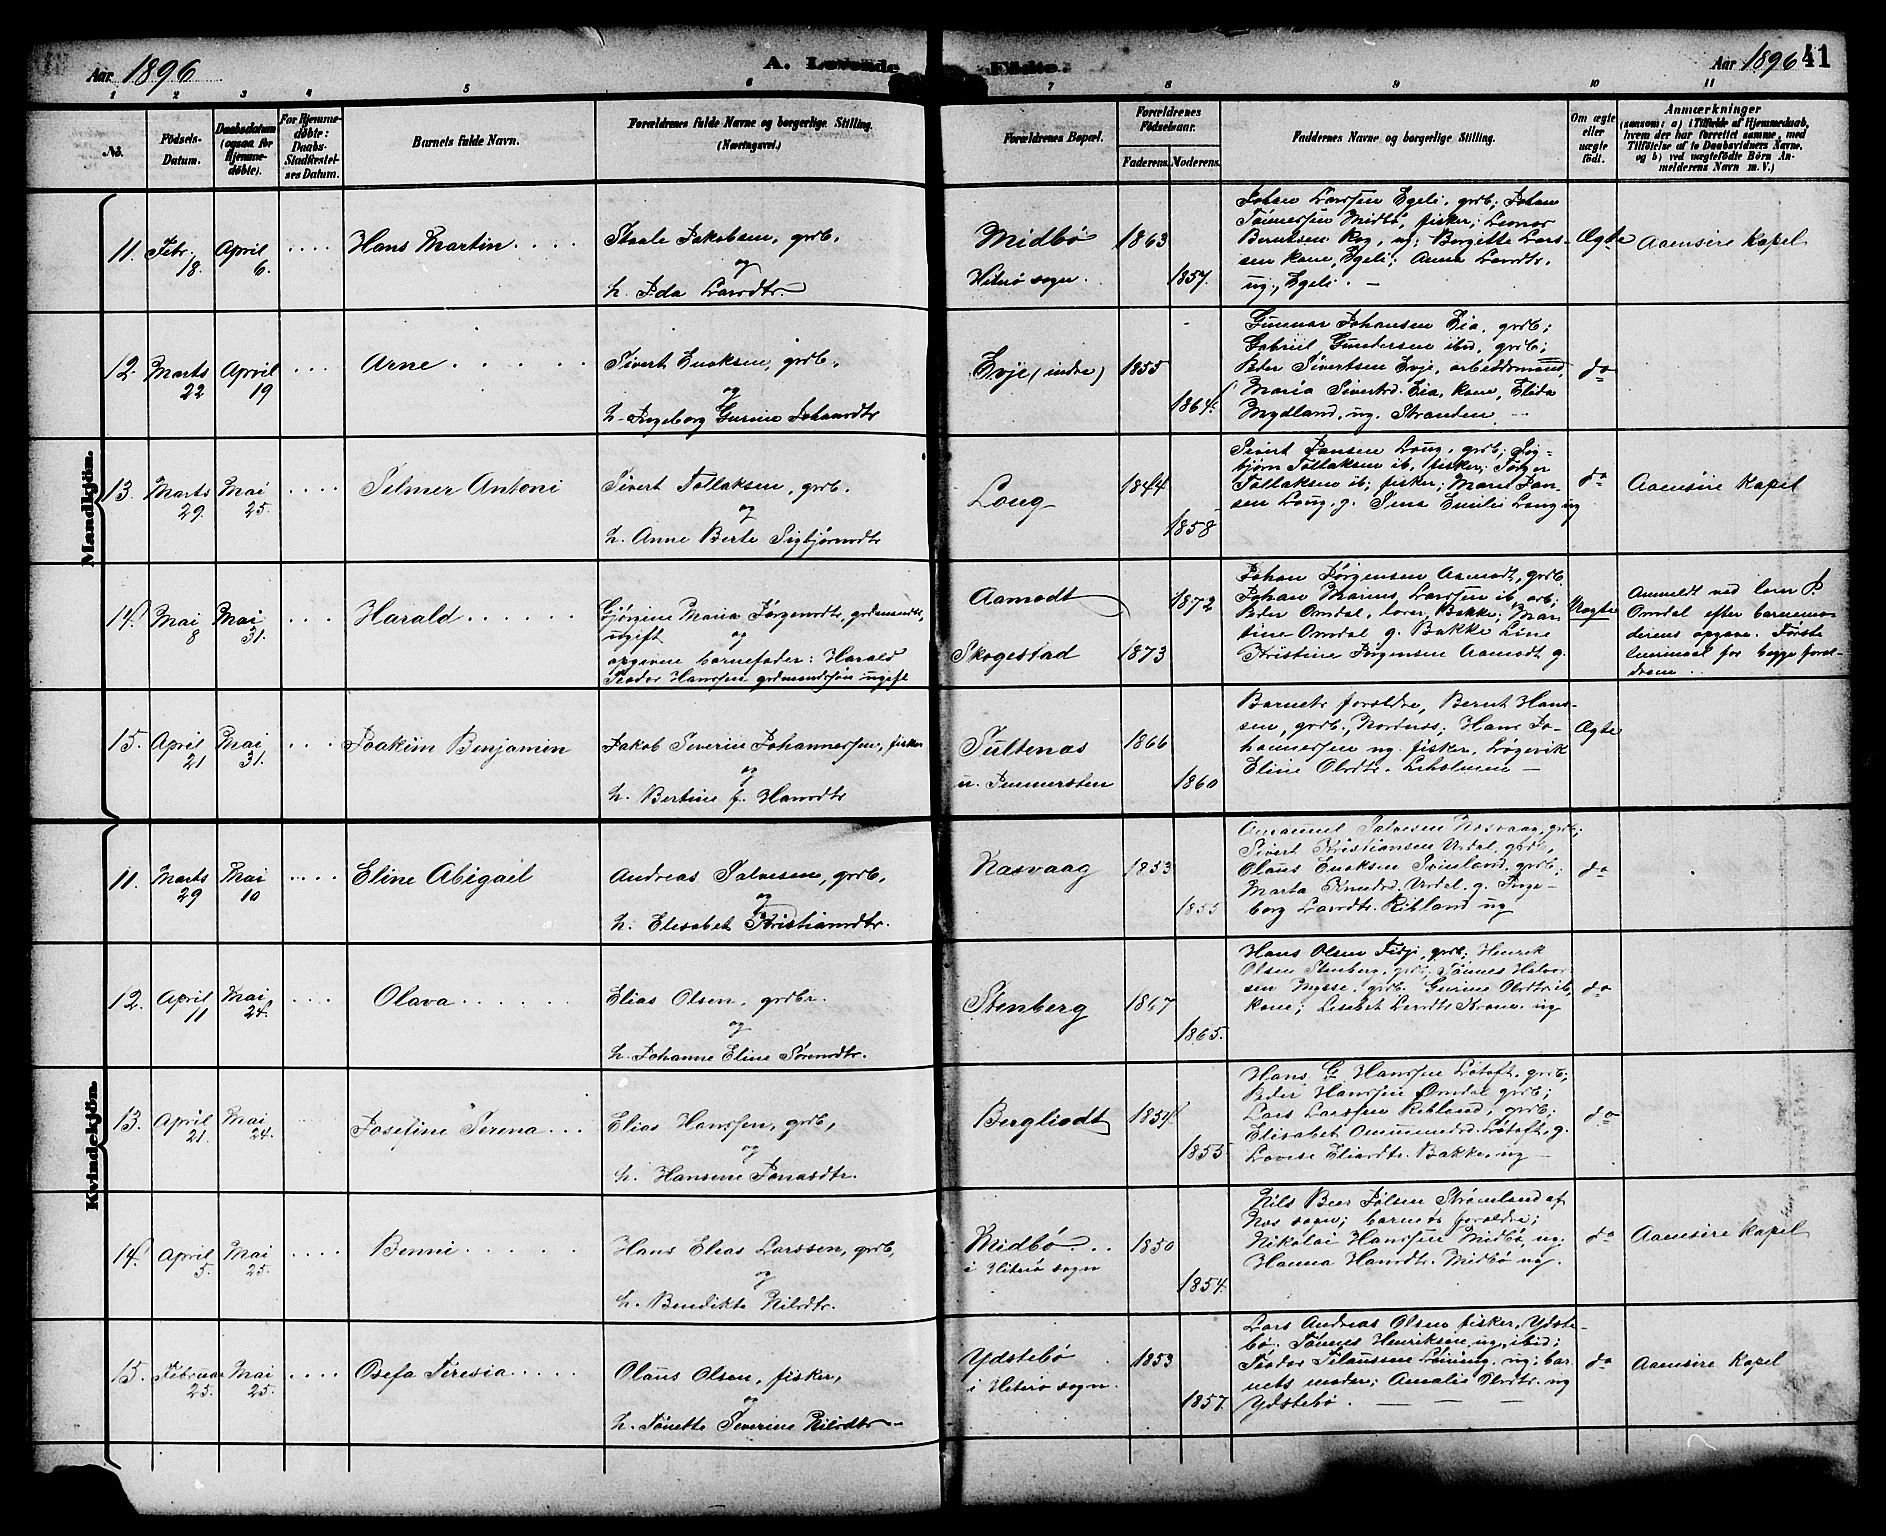 Aar 1896
A. Levende
Fødte.
Aar 1896
41
1 2 3 4 5 6 7 8 9 10 11
No.
Födsels-
Datum.
Daabsdatum
(ogsaa for
Hjemme-
døbte).
For Hjemme-
døbte:
Daabs-
Stadfæstel-
ses Datum.
Barnets fulde Navn.
Forældrenes fulde Navne og borgerlige Stilling.
(Næringsvei.)
Forældrenes Bopæl.
Forældrenes
Fødselsaar.
Faderens. Moderens.
Faddernes Navne og borgerlige Stilling.
Om ægte
eller
uægte
født.
Anmærkninger
(saasom: a) i Tilfælde af Hjemmedaab,
hvem der har forrettet samme, med
Tilføielse af to Daabsvidners Navne,
og b) ved uægtefødte Börn An-
melderens Navn m. V.)
Mandkjön.
11. Febr. 18. April 6. Hans Martin
Staale Jakobsen, grdb.
og
h. Ida Larsdtr.
Midbö
Hiterø sogn.
1863
1857.
Johan Larssen Egeli, grdb; Johan
Tönnessen Midbö, fisker;
Berntsen Røg, ug; Borgette Lars-
sen kone, Egeli; Anna Larsdtr.
ug., Egeli. —
Ægte
Aaensire Kapel
12. Marts 22 April 19 Arne
Sivert Enoksen, grdb.
og
h. Ingeborg Gurine Johansdtr
Evje (indre)
1855
1864.
Gunnar Johansen Eia, grdb;
Gabriel Gundersen ibid, grdb;
Peder Sivertsen Evje, arbeidsmand,
Maria Sivertsd. Eia, kone, Elida
Mydland, ug. Stranden
do
13. Marts 29. Mai 25. Selmer Antoni
Sivert Tollaksen, grdb.
og
h. Anne Berte Sigbjørnsdtr
Loug
1844
1858
Sivert Jansen Loug, grdb; Sig-
bjørn Tollaksen ib, fisker; Torger
Tollaksen ib; fisker; Marie Jan-
sen Loug, g. Sina Emilie Loug ug
do
Aaensire Kapel
14. Mai 8 Mai 31. Harald
Gjørgine Maria Jørgensdtr, grdmandsdtr,
ugift og
opgiven barnefader: Harald
Teodor Hanssen grdmandssøn ugift
Aamodt
Skogestad
1872
1873
Johan Jørgensen Aamodt, grdb.
Johan Marius Larssen ib arb;
Peder Omdal, lærer, Bakke; Mar-
tine Omdal g. Bakke Line
Kristine Jørgensen Aamodt g.
Uægte
Anmeldt ved lærer P.
Omdal efter barnemo-
derens opgave. Første
leiermaal for begge foræl-
drene
15. April 21 Mai 31. Joakim Benjamin
Jakob Severin Johannessen, fisker
og
h. Bertine f. Hansdtr
Sultenas
u. Immersten
1866
1860
Barnets forældre, Bernt Hans-
sen, grdb., Nordnes; Hans Jo-
hannessen ug. fisker, Løgevik
Eline Olsdtr. Leholmen —
Ægte
Kvindekjön.
11. Marts 29 Mai 10 Eline Abigael
Andreas Salvesen, grdb,
og
h. Elisabet Kristiansdtr.
Rasvaag
1853
1855
Amanuel Salvesen Rasvaag, grdb;
Sivert Kristiansen Urdal, grdb,
Olaus Enoksen, grdb;
Marta Knudsd. Urdal, g. Inge-
borg Larsdtr. Ribland ug
do
12. April 11 Mai 24. Olava
Elias Olsen, grdbr.
og
h. Johanne Eline Sørensdtr.
Stenberg
1867
1865.
Hans Olsen, grdb; Henrik
Olsen Stenberg, grdb; Tönnes Halvor-
sen Mysse, grdb Gurine Olsdtr ib,
kone; Lisebet Larsdtr. ug
do
13. April 21. Mai 24. Josefine Serena
Elias Hanssen, grdb,
og
h. Hansine Jonasdtr.
Bergliodt
1854
1855
Hans G. Hanssen Lotoft, grdb;
Peder Hanssen Omdal grdb;
Lars Larssen Ribland, grdb;
Elisabet Amundsd. Lotoft, g.
Lovise Eliasdtr. Bakke, ug —
do
14. April 5. Mai 25. Benni
Hans Elias Larssen, grdb,
og
h. Bendikte Nilsdtr.
Midbö
i Hiterø sogn
1850
1854.
Nils Beer Jølsen Strømland af
Nes sogn; barnets forældre;
Nikolai Hanssen Midbö, ug.
Hanna Hansdtr. Midbö ug.
do
Aaensire Kapel
15. Februar 25. Mai 25. Osefa Teresia
Olaus Olsen, fisker,
og
h. Tönette Severine Nilsdtr
Ydstebö
i Hiterø sogn.
1853
1857.
Lars Andreas Olsen fisker, Ydste-
bö. Tönnes Henriksen ug. ibid;
Teodor Tilaussen, ug; bar-
nets moder; Amalie Olsdtr. ug
Ydstebö. — — — —
do
Aaensire Kapel